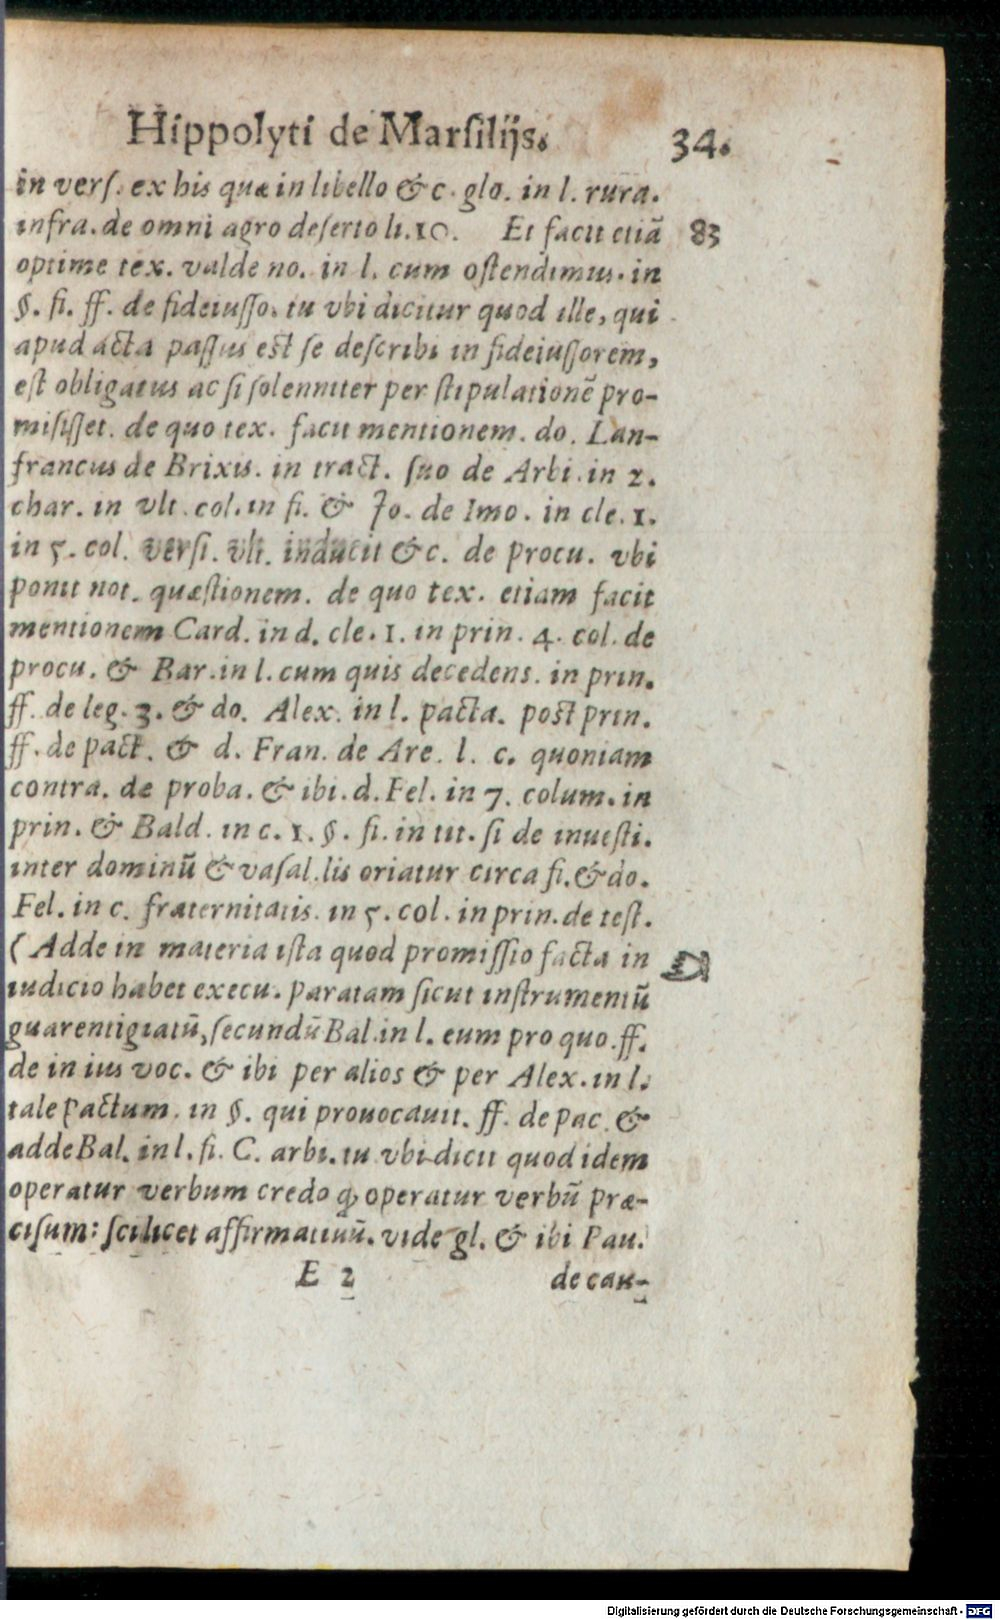 Hippolyti de Marſilijs. 34.
in verſ. ex his quæ in libello &c. glo. in l. rura.
infra. de omni agro deſerto li. 10. Et facit etiã 83
optime tex. valde no. in l. cum oſtendimus. in
§. fi. ff. de fideiuſſo. tu vbi dicitur quod ille, qui
apud acta paſſus est ſe deſcribi in fideiuſſorem,
eſt obligatus ac ſi ſolenniter per ſtipulationẽ pro-
miſiſſet. de quo tex. facit mentionem. do. Lan-
francus de Brixis. in tract. ſuo de Arbi. in 2.
char. in vlt. col. in fi. & Jo. de Imo. in cle. 1.
in 5. col. verſi. vlt. inducit &c. de procu. vbi
ponit not. quæſtionem. de quo tex. etiam facit
mentionem Card. in d. cle. 1. in prin. 4. col. de
procu. & Bar. in l. cum quis decedens. in prin.
ff. de leg. 3. & do. Alex. in l. pacta. post prin.
ff. de pact. & d. Fran. de Are. l. c. quoniam
contra. de proba. & ibi. d. Fel. in 7. colum. in
prin. & Bald. in c. 1. §. fi. in tit. ſi de inueſti.
inter dominũ & vaſal. lis oriatur circa fi. & do.
Fel. in c. fraternitatis. in 5. col. in prin. de teſt.
( Adde in materia iſta quod promiſſio facta in
iudicio habet execu. paratam ſicut inſtrumentũ
guarentigiatũ, ſecundũ Bal. in l. eum pro quo. ff.
de in ius voc. & ibi per alios & per Alex. in l.
tale pactum. in §. qui prouocauit. ff. de pac. &
adde Bal. in l. fi. C. arbi. tu vbi dicit quod idem
operatur verbum credo ꝙ operatur verbũ præ-
ciſum: ſcilicet affirmatiuũ. vide gl. & ibi Pau.
E 2 de cau-
Digitalisierung gefördert durch die Deutsche Forschungsgemeinschaft - DFG